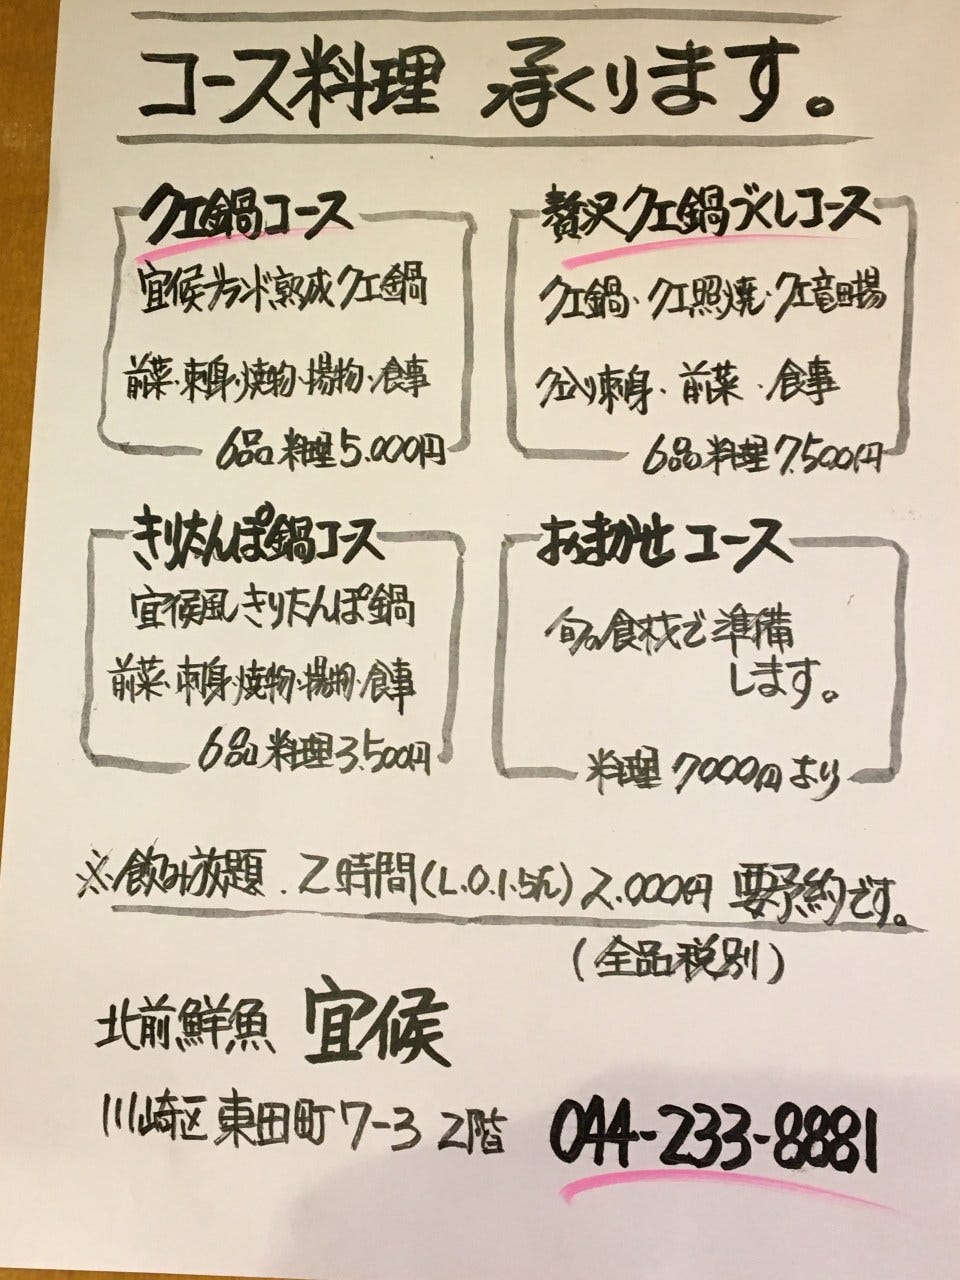 コース料理 承ります。
クエ鍋コース
宜候ブランド熟成クエ鍋
前菜・刺身・焼物・揚物・食事
6品料理5.000円
贅沢クエ鍋づくしコース
クエ鍋・クエ照焼・クエ竜田揚
クエ入り刺身・前菜・食事
6品料理7.500円
きりたんぽ鍋コース
宜候風きりたんぽ鍋
前菜・刺身・焼物・揚物・食事
6品料理3.500円
おまかせコース
旬の食材で準備
します。
料理7000円より
※飲み放題.2時間(L.O.1.5h)2.000円要予約です。
(全品税別)
北前鮮魚 宜候
川崎区東田町7-3 2階 044-233-8881